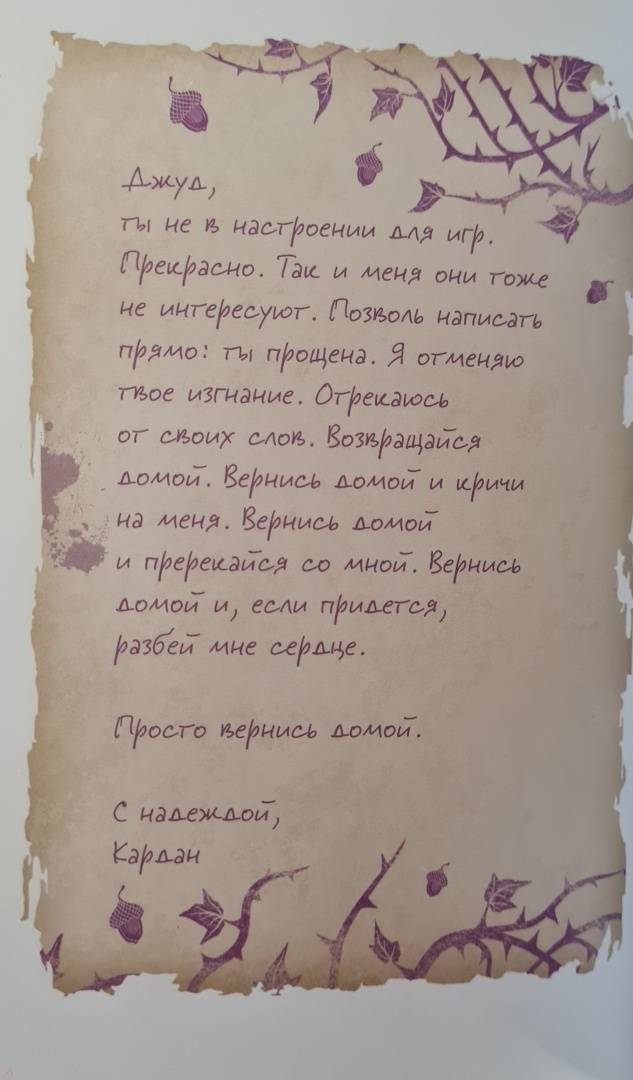 Джуд,
ты не в настроении для игр.
Прекрасно. Так и меня они тоже
не интересуют. Позволь написать
прямо: ты прощена. Я отменяю
твое изгнание. Отрекаюсь
от своих слов. Возвращайся
домой. Вернись домой и кричи
на меня. Вернись домой
и пререкайся со мной. Вернись
домой и, если придется,
разбей мне сердце.
Просто вернись домой.
С надеждой,
Кардан